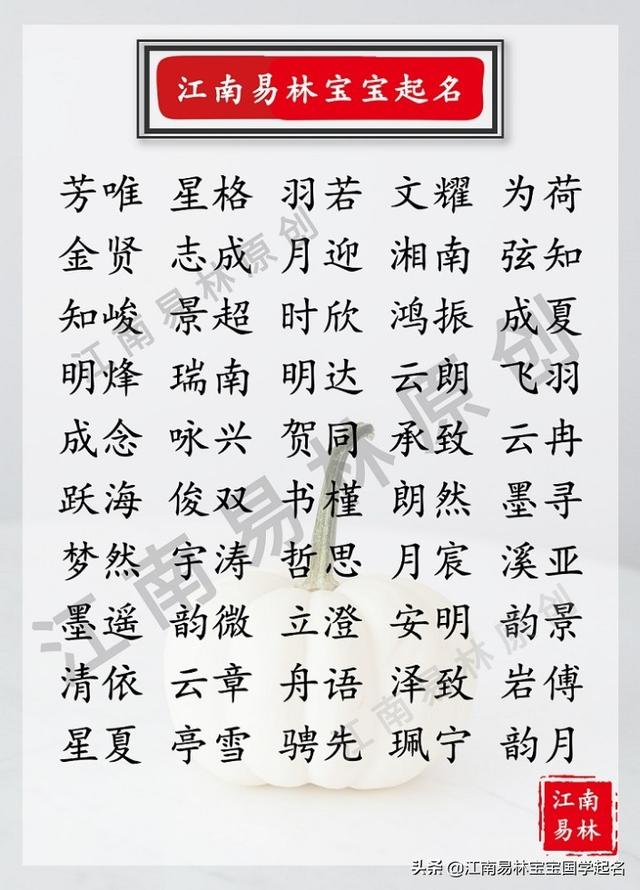 江南易林宝宝起名
芳唯 星格 羽若 文耀 为荷
金贤 志成 月迎 湘南 弦知
知峻 景超 时欣 鸿振 成夏
明烽 瑞南 明达 云朗 飞羽
成念 咏兴 贺同 承致 云冉
跃海 俊双 书槿 朗然 墨寻
梦然 宇涛 哲思 月宸 溪亚
墨遥 韵微 立澄 安明 韵景
清依 云章 舟语 泽致 岩傅
星夏 亭雪 骋先 珮宁 韵月
江南易林原创
江南易林原创
江南易林原创
江南
易林
头条 @江南易林宝宝国学起名